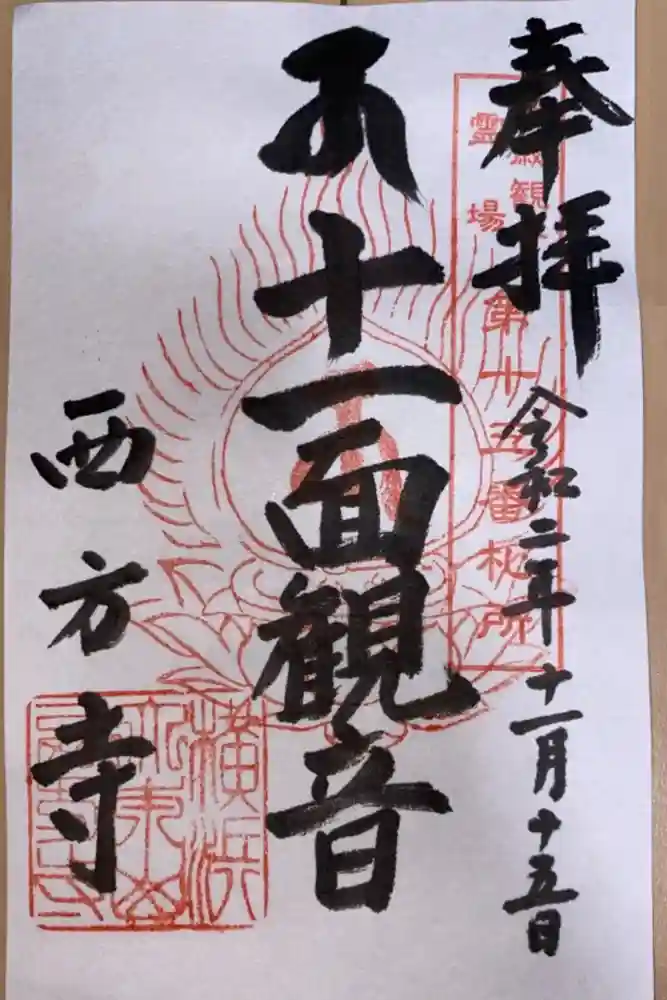 奉拝
令和二年十一月十五日
霊場
第十三番札所
十一面観音
西方寺
横浜